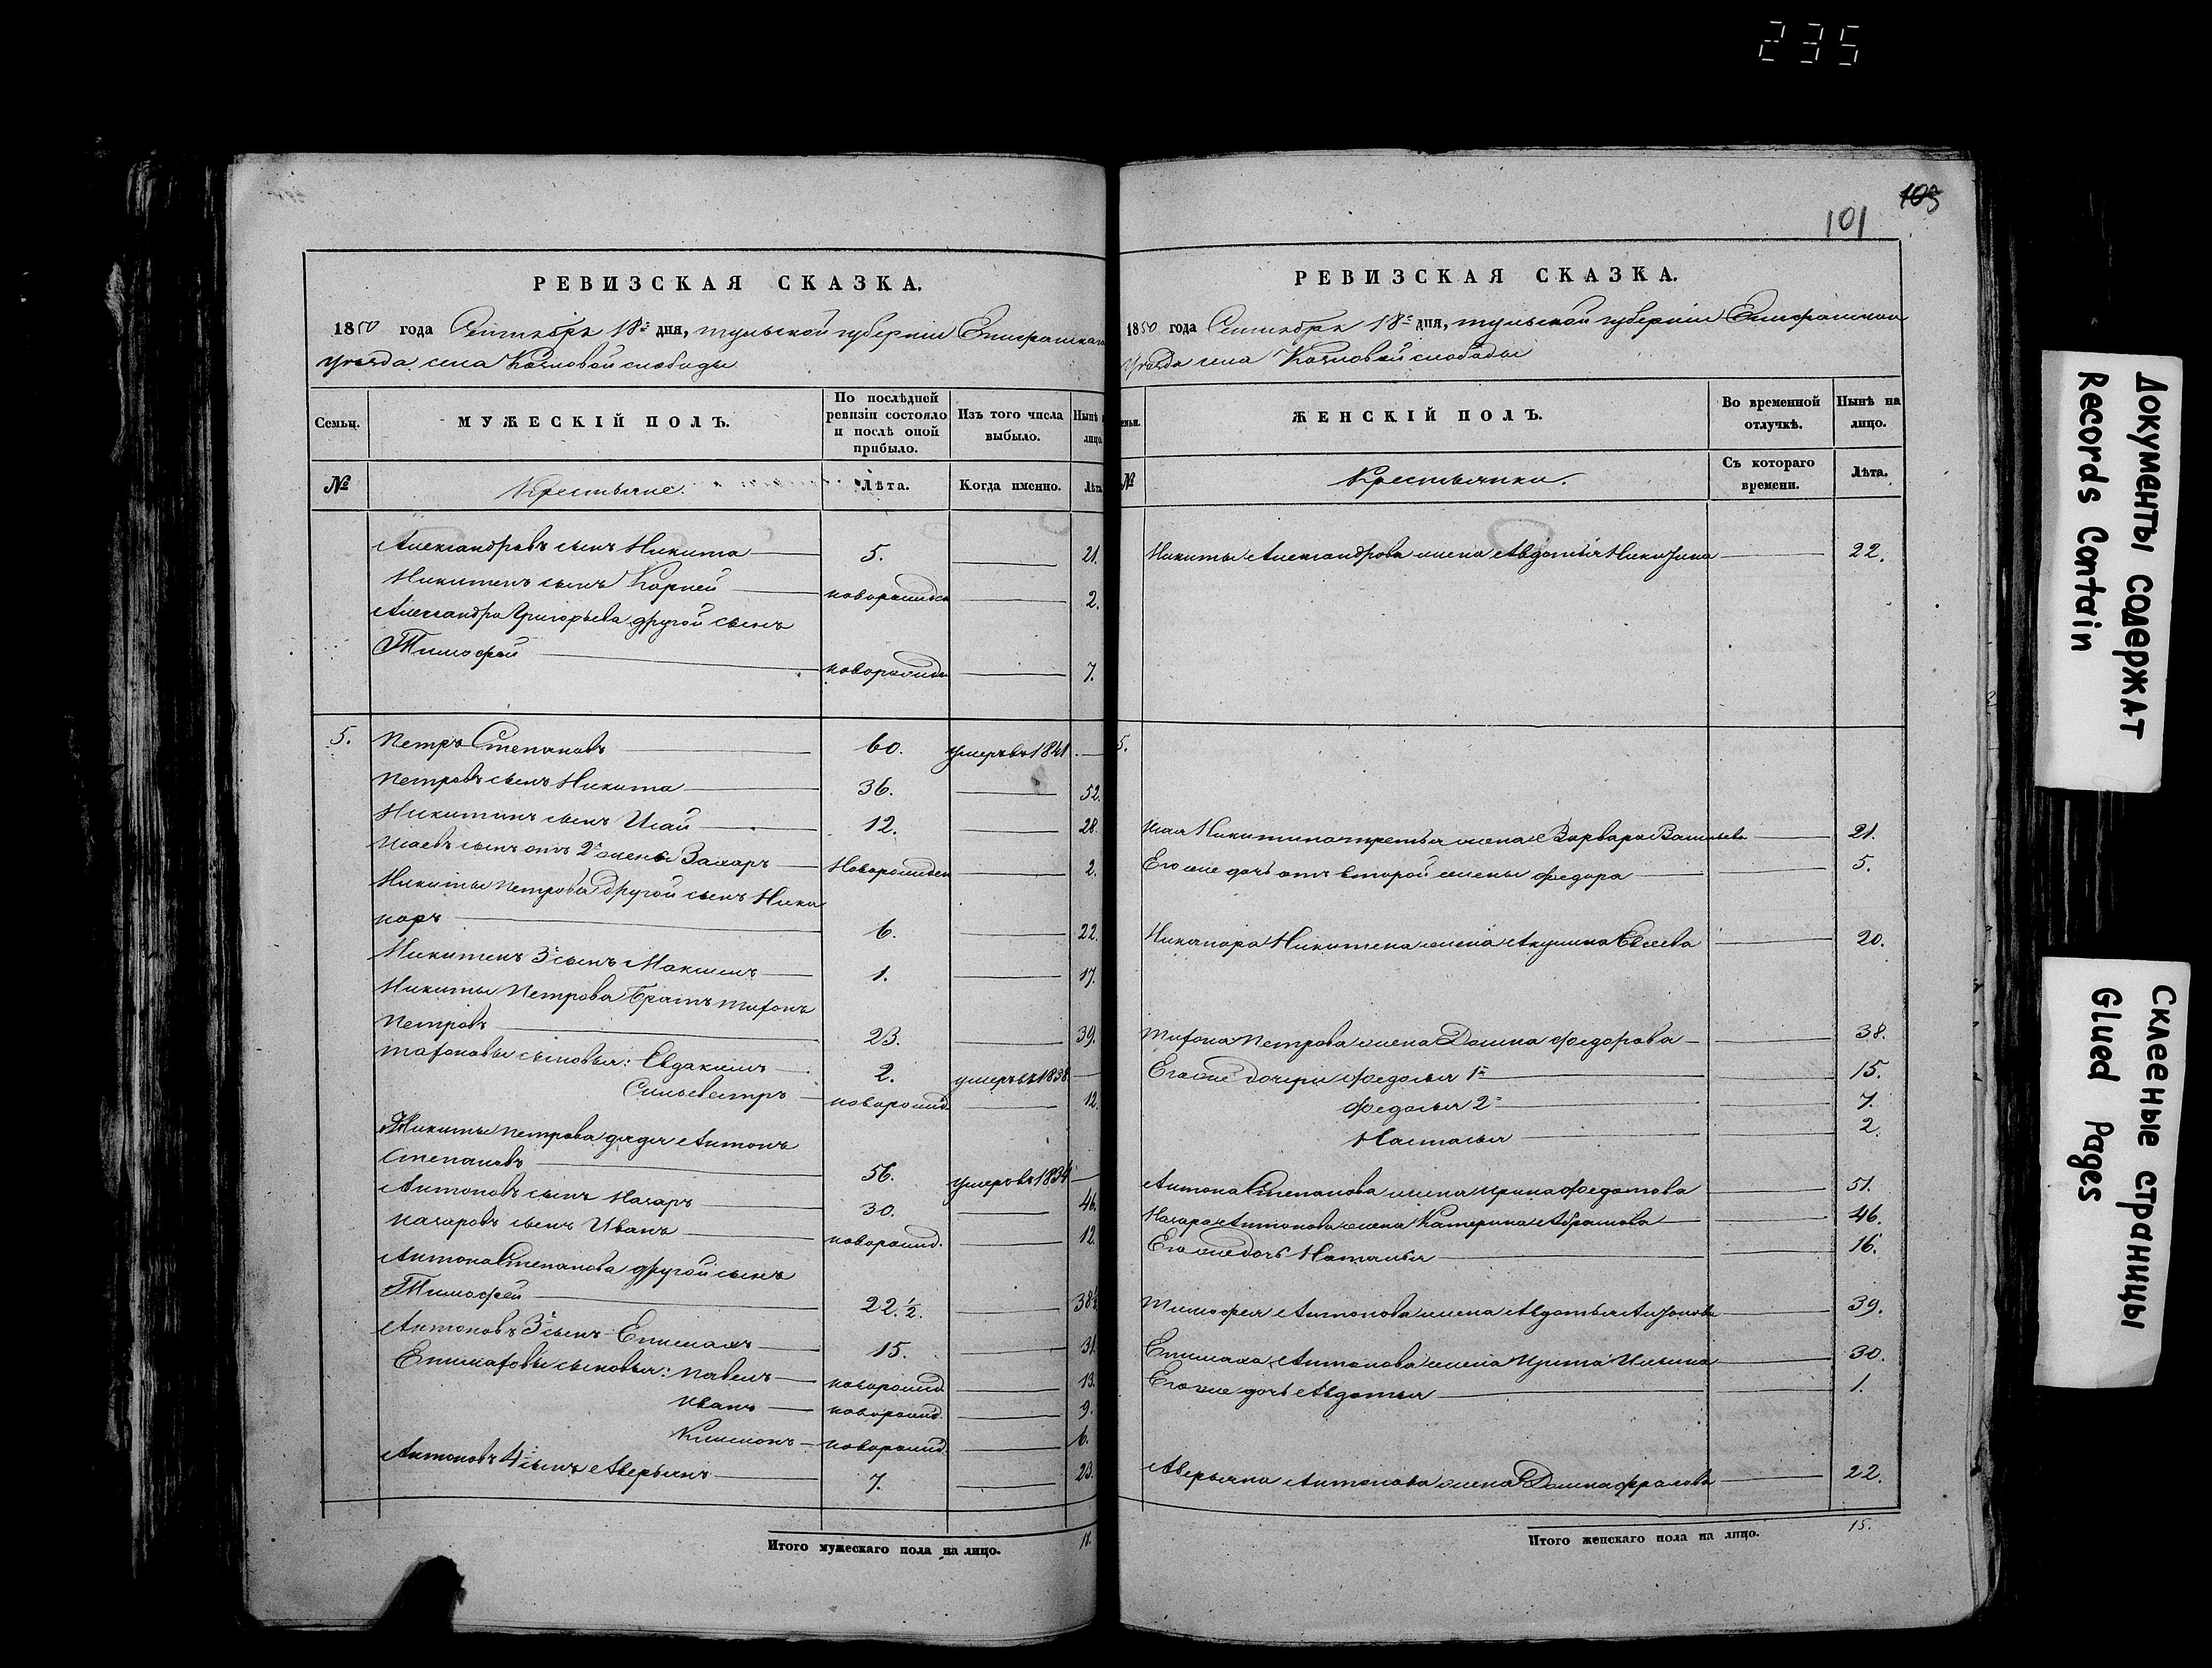 235
РЕВИЗСКАЯ СКАЗКА.
1850 года Сентября 18го дня, тульской губерніи Епифанскаго
уѣзда села Казловой слободы
Семьи.
МУЖЕСКІЙ ПОЛЪ.
По послѣдней ревизіи состояло и послѣ оной прибыло.
Изъ того числа выбыло.
Нынѣ на лицо.
№
Крестьяне.
Лѣта.
Когда именно.
Лѣта
Александровъ сынъ Никита 5. 21.
Никитинъ сынъ Карней новорожден 2.
Александра Григорьева другой сынъ
Тимофей новорожден 7.
5. Петръ Степановъ 60. умеръ въ 1841
Петровъ сынъ Никита 36. 52.
Никитинъ сынъ Исай 12. 28.
Исаевъ сынъ отъ 2й жены Захаръ Новорожден 2.
Никиты Петрова другой сынъ Ника
норъ 6. 22.
Никитинъ 3й сынъ Максимъ 1. 17.
Никиты Петрова братъ Тифонъ
Петровъ 23. 39.
Тифоновы сыновья: Евдакимъ 2. умеръ въ 1838
Сильвестръ новорожд. 12.
Никиты Петрова дядя Антонъ
Степановъ 56. умеръ въ 1834
Антоновъ сынъ Назаръ 30. 46.
Назаровъ сынъ Иванъ новорожд. 12.
Антона Степанова другой сынъ
Тимофей 22.½. 38½
Антоновъ 3й сынъ Епимахъ 15. 31.
Епимаховы сыновья: Павелъ новорожд. 13.
Иванъ новорожд. 9.
Климонъ новорожд. 6.
Антоновъ 4й сынъ Аверьянъ 7. 23.
Итого мужескаго пола на лицо.
103
101
РЕВИЗСКАЯ СКАЗКА.
1850 года Сентября 18го дня, тульской губерніи Епифанскаго
уѣзда села Казловой слободы
Семьи.
ЖЕНСКІЙ ПОЛЪ.
Во временной отлучкѣ.
Нынѣ на лицо.
№
Крестьянки.
Съ котораго времени.
Лѣта.
Никиты Александрова жена Авдотья 22.
5.
Исая Никитина третья жена Варвара Васильева 21.
Его же дочь отъ второй жены Федора 5.
Никанора Никитина жена Акулина Евсеева 20.
Тифона Петрова жена Домна Федорова 38.
Его же дочери Федосья 1я 15.
Федосья 2я 7.
Настасья 2.
Антона Степанова жена Ирина Федотова 51.
Назара Антонова жена Катерина Абрамова 46.
Его же дочь Наталья 16.
Тимофея Антонова жена Авдотья 39.
Епимаха Антонова жена Ильина 30.
Его же дочь Авдотья 1.
Аверьяна Антонова жена Домна Фралова 22.
Итого женскаго пола на лицо. 15.
Документы содержат
Records Contain
Склееные страницы
Glued Pages